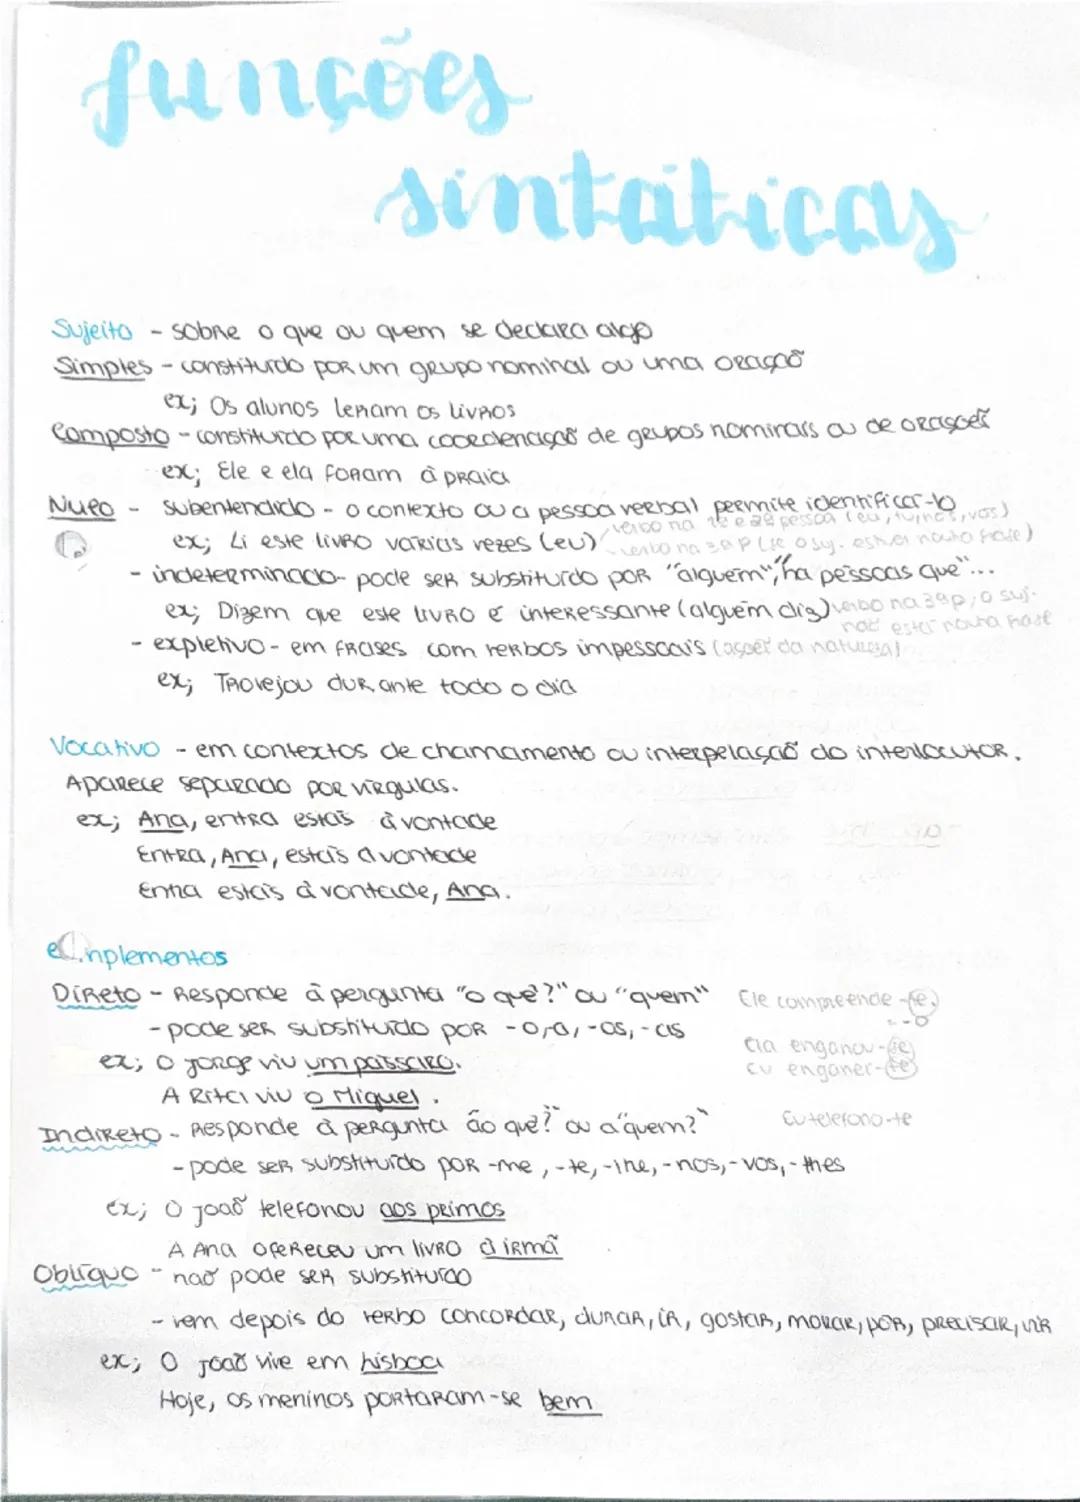 funções
sintáticas
Sujeito - sobre o que ou quem se declara algo
Simples - constituído por um grupo nominal ou uma oração
ex; Os alunos leram os livros
Composto - constituído por uma coordenação de grupos nominais ou de orações
ex; Ele e ela foram à praia
Nulo - subentendido - o contexto ou a pessoa verbal permite identificar-lo
verbo na 1ª e 2ª pessoa (eu, tu, nós, vós)
ex; Li este livro várias vezes (eu) verbo na 3ª p (se o suj. estiver noutra frase)
- indeterminado- pode ser substituído por "alguém", "há pessoas que"...
ex; Dizem que este livro é interessante (alguém diz) verbo na 3ª p, o suj.
não está noutra frase
- expletivo - em frases com verbos impessoais (ações da natureza)
ex; Trovejou durante todo o dia
Vocativo - em contextos de chamamento ou interpelação do interlocutor.
Aparece separado por vírgulas.
ex; Ana, entra estás à vontade
Entra, Ana, estás à vontade
Entra estás à vontade, Ana.
mplementos
Direto - Responde à pergunta "o quê?" ou "quem" Ele compreende-te.
- pode ser substituído por -o,-a,-os,-as --o
ex; O Jorge viu um pássaro. Ela enganou-se
Eu enganer-te
A Rita viu o Miguel.
Indireto - Responde à pergunta "ão quê?" ou a "quem?" Eu telefono-te
- pode ser substituído por -me, -te, -lhe, -nos, -vos, -lhes
ex; O João telefonou aos primos
A Ana ofereceu um livro à irmã
Oblíquo - não pode ser substituído
- vem depois do verbo concordar, durar, ir, gostar, morar, pôr, precisar, vir
ex; O João vive em Lisboa
Hoje, os meninos portaram-se bem